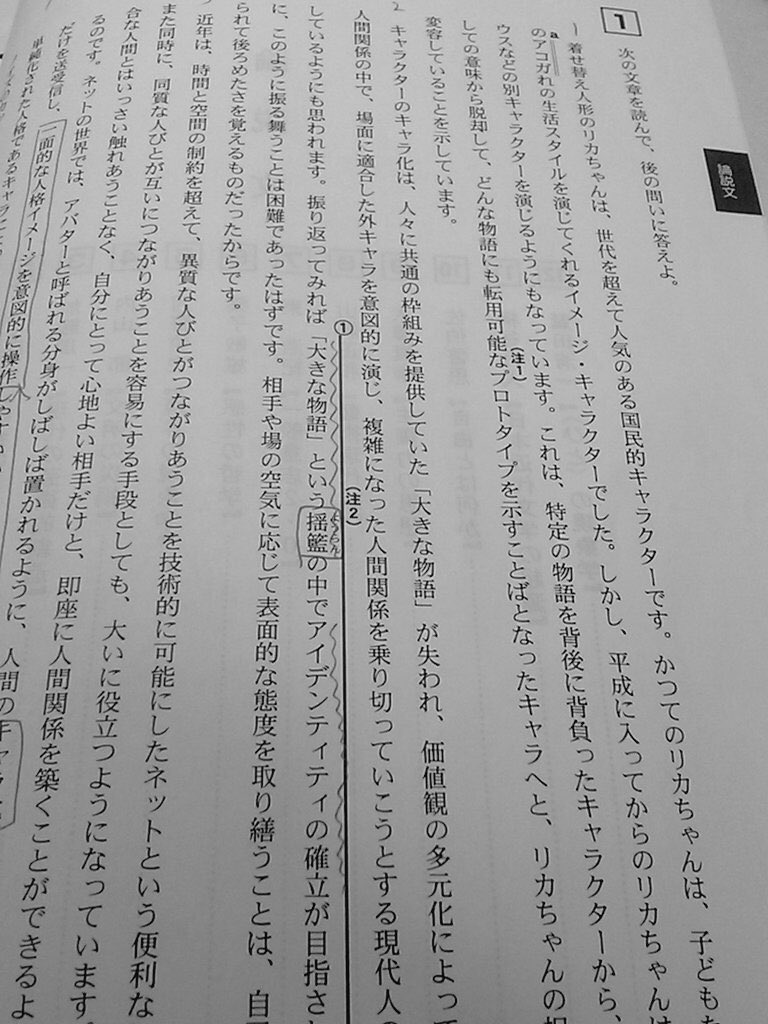 論説文
1
次の文章を読んで、後の問いに答えよ。
着せ替え人形のリカちゃんは、世代を超えて人気のある国民的キャラクターです。かつてのリカちゃんは、子どもた
aのアコガれの生活スタイルを演じてくれるイメージ・キャラクターでした。しかし、平成に入ってからのリカちゃんは
ウスなどの別キャラクターを演じるようにもなっています。これは、特定の物語を背後に背負ったキャラクターから、
しての意味から脱却して、どんな物語にも転用可能なプロトタイプを示すことばとなったキャラへと、リカちゃんの
(注1)
変容していることを示しています。
キャラクターのキャラ化は、人々に共通の枠組みを提供していた「大きな物語」が失われ、価値観の多元化によって
人間関係の中で、場面に適合した外キャラを意図的に演じ、複雑になった人間関係を乗り切っていこうとする現代人の
(注2)
①
しているようにも思われます。振り返ってみれば「大きな物語」という揺籃の中でアイデンティティの確立が目指さ
ようらん
に、このように振る舞うことは困難であったはずです。相手や場の空気に応じて表面的な態度を取り繕うことは、自
られて後ろめたさを覚えるものだったからです。
近年は、時間と空間の制約を超えて、異質な人びとがつながりあうことを技術的に可能にしたネットという便利な
また同時に、同質な人びとが互いにつながりあうことを容易にする手段としても、大いに役立つようになっています。
合な人間とはいっさい触れあうことなく、自分にとって心地よい相手だけと、即座に人間関係を築くことができるよ
るのです。ネットの世界では、アバターと呼ばれる分身がしばしば置かれるように、人間の
だけを送受信し、一面的な人格イメージを意図的に操作しやすい
単純化された人格であるキャラ